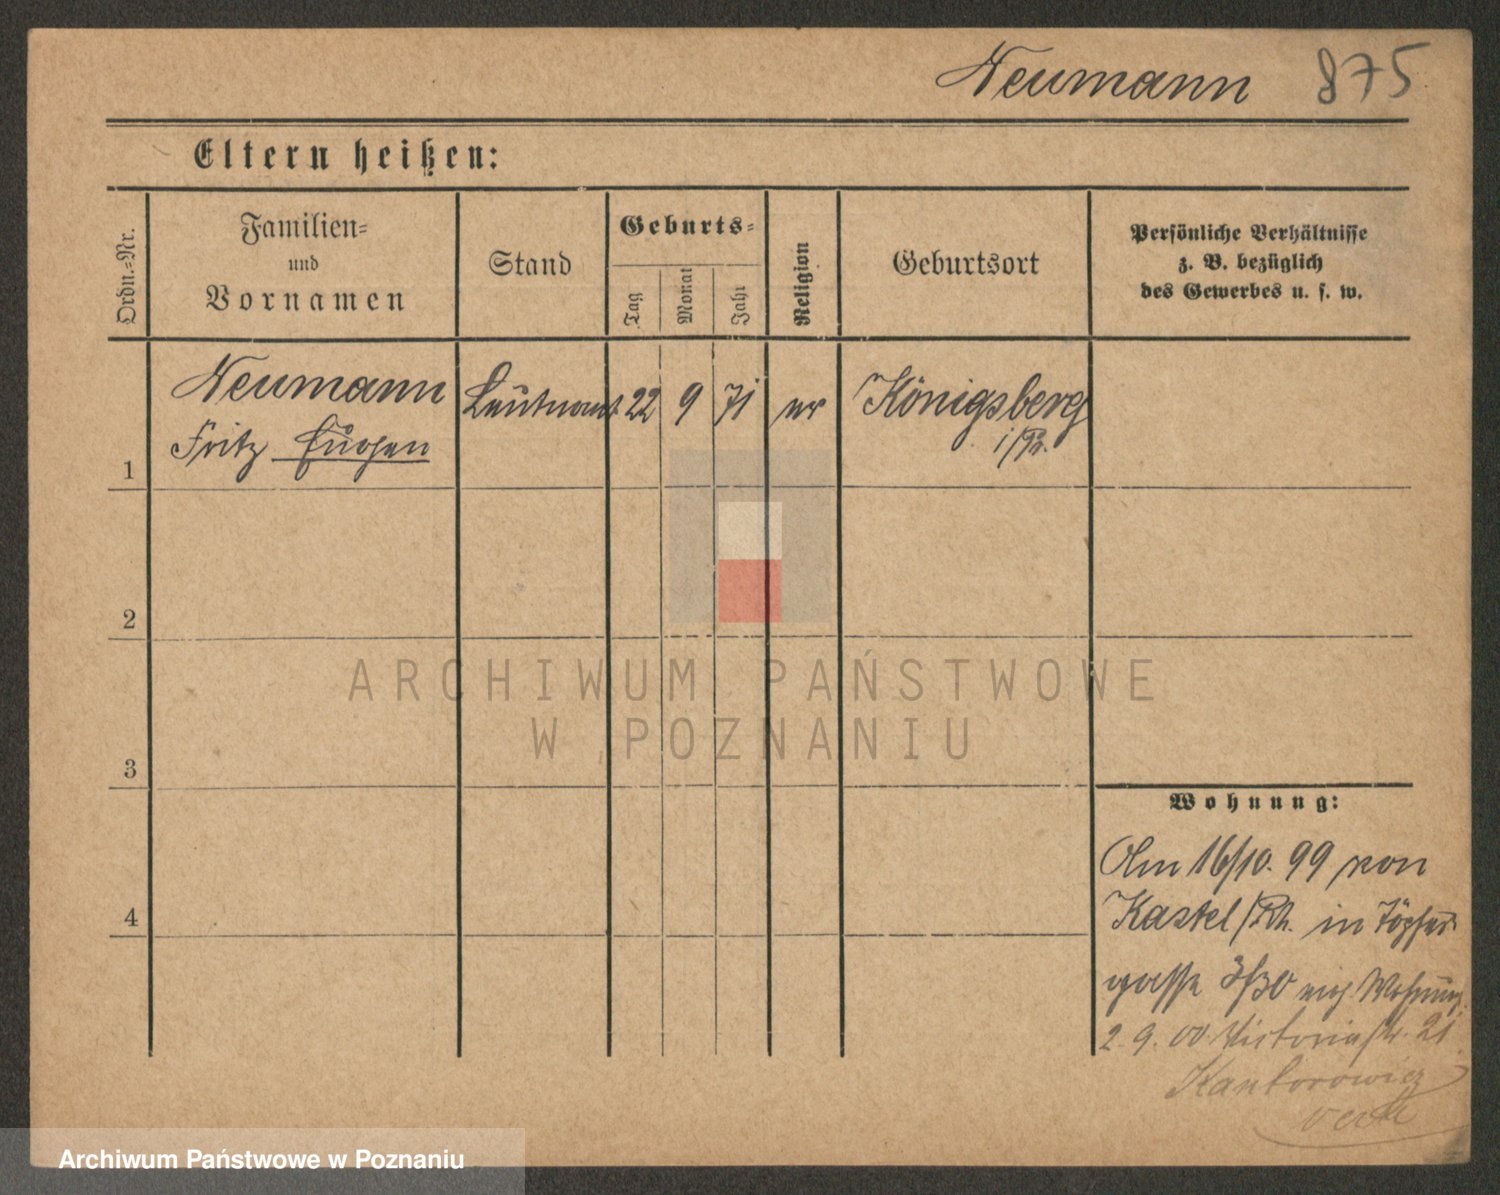 Neumann 875
Eltern heißen:
Ordn.=Nr.
Familien=
und
Vornamen
Stand
Geburts=
Tag
Monat
Jahr
Religion
Geburtsort
Persönliche Verhältnisse
z. B. bezüglich
des Gewerbes u. s. w.
1
Neumann Leutnant 22 9 71 ev Königsberg
Fritz Eugen i/Pr.
2
3
4
Wohnung:
Am 16/10. 99 von
Kastel/Rh. in Töpfer
gasse 3/30 eig Wohnung.
2. 9. 00. Victoriastr. 21
Kantorowicz
ARCHIWUM PAŃSTWOWE
W POZNANIU
Archiwum Państwowe w Poznaniu